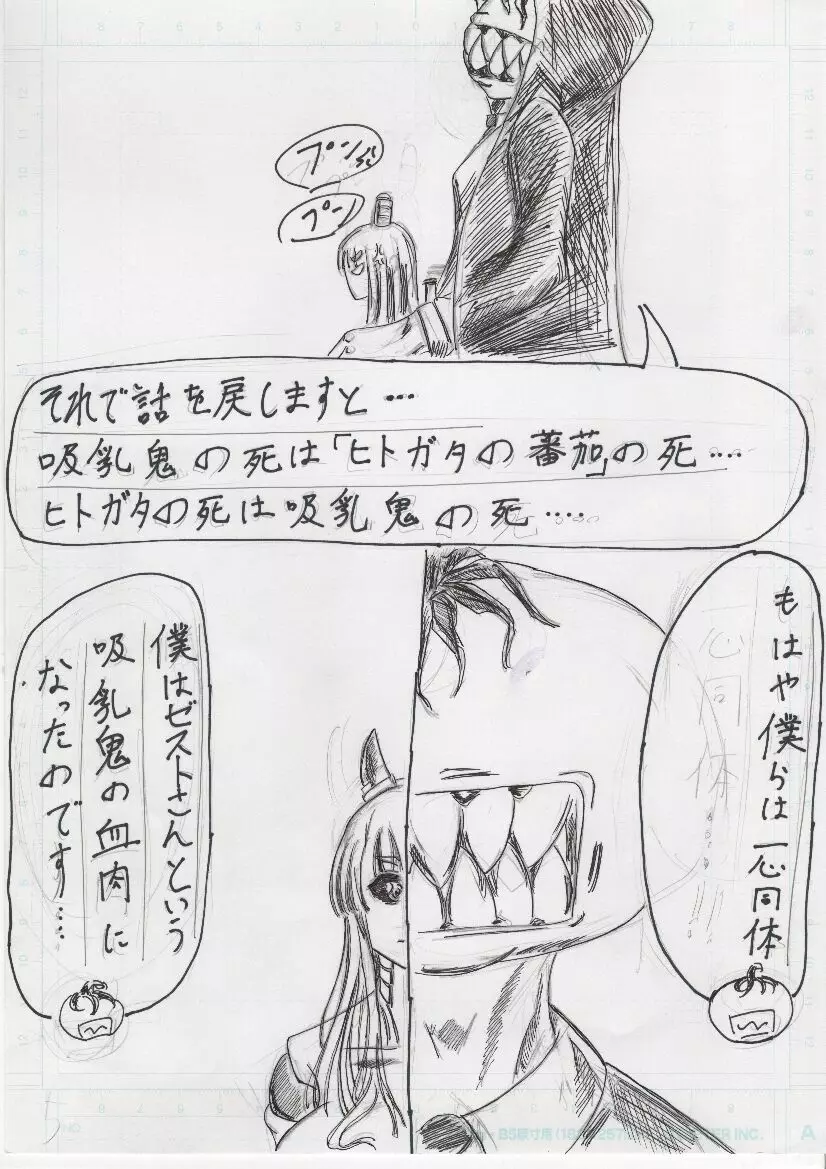 プン
プン
それで話を戻しますと…
吸乳鬼の死は「ヒトガタの蕃茄」の死….
ヒトガタの死は吸乳鬼の死….
もはや僕らは一心同体
僕はゼストさんという
吸乳鬼の血肉に
なったのです….
5
A